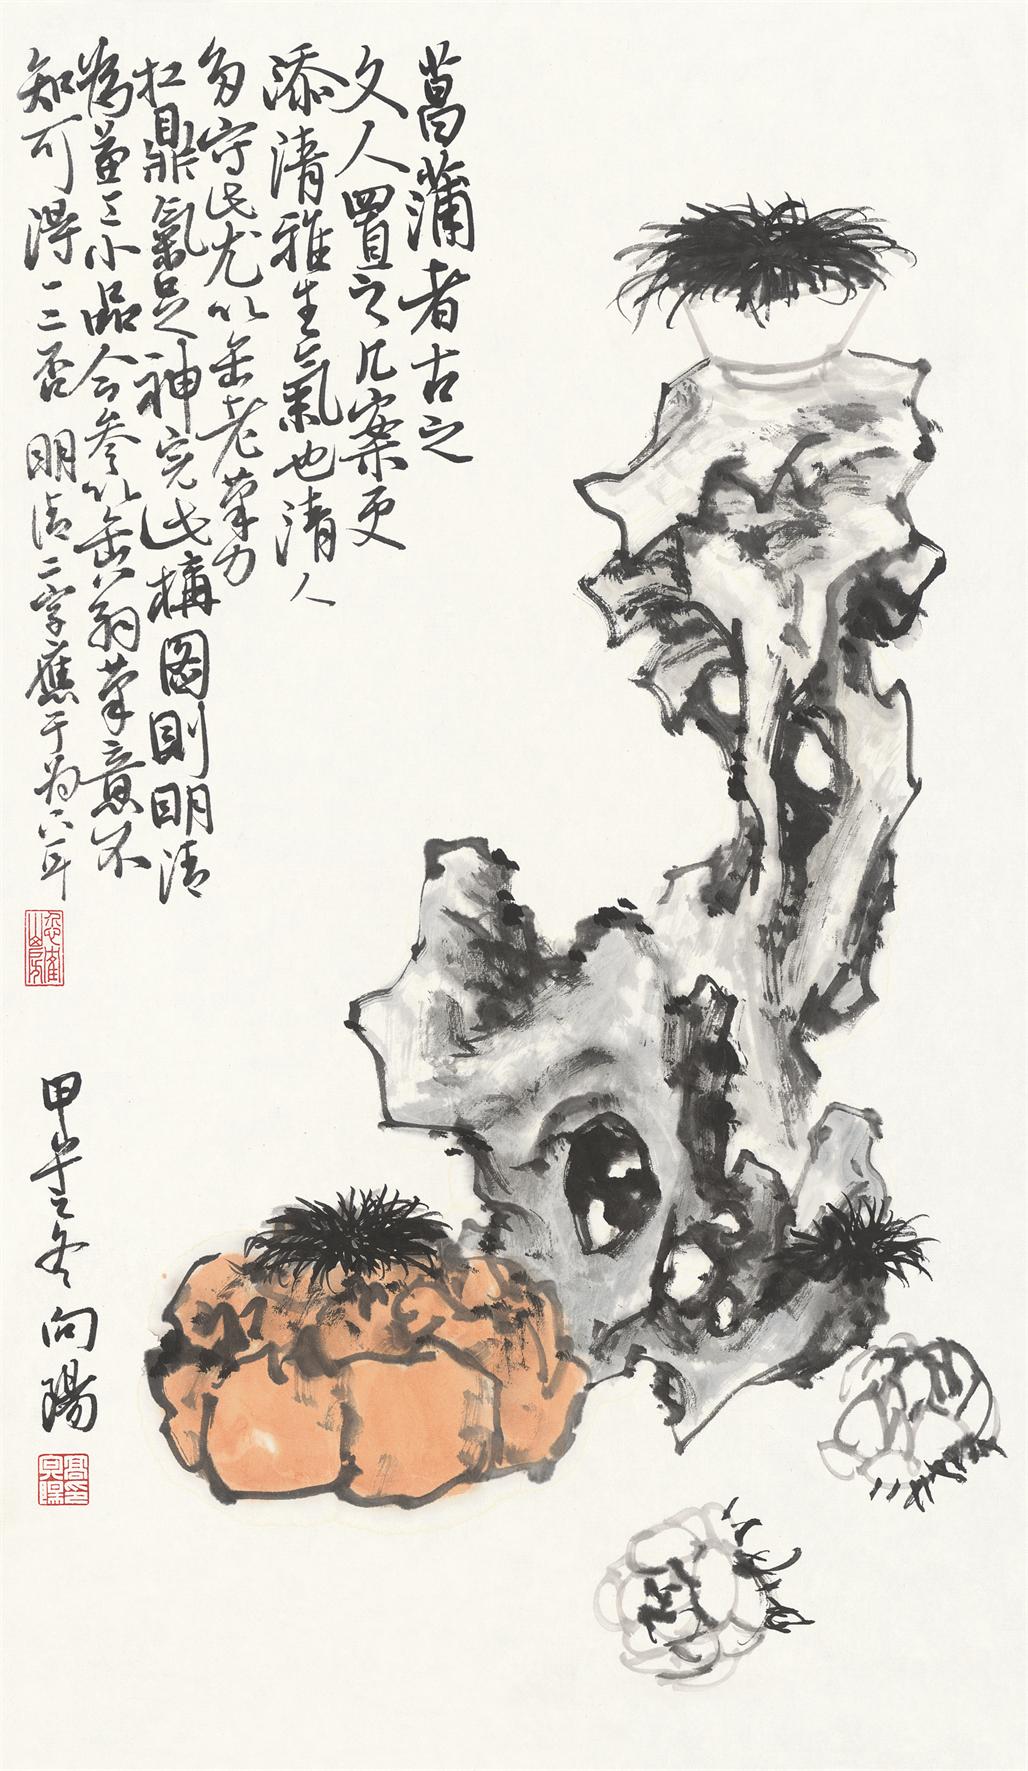 菖蒲者古之
文人置之几案更
添清雅生氣也清人
多守此尤以缶老筆力
扛鼎氣足神完此構圖則明清
為蘆之小品合參以缶翁筆意不
知可得一二否 明清二字應于為下耳
甲午之冬向陽